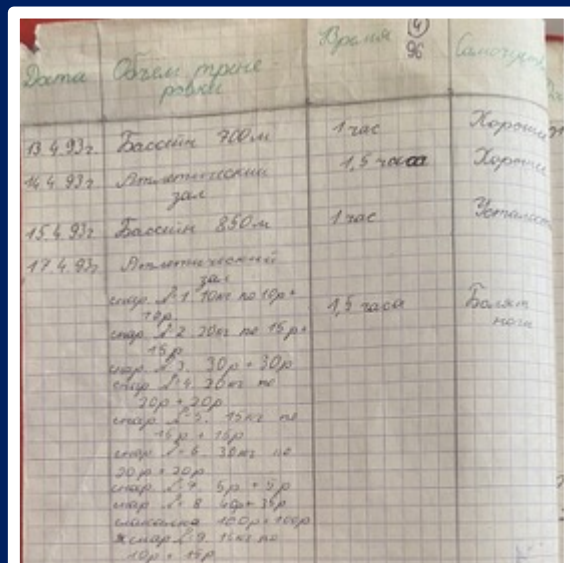 Время 4
96
Дата Объём трене- Самочувст
ровки
13.4.93г Бассейн 700м 1 час Хорошее
14.4.93г Атлетический 1,5 часа Хорошее
зал
15.4.93г Бассейн 850м 1 час Усталость
17.4.93г Атлетический
зал
снар. №1. 10кг по 10р+ 1,5 часа Болят
10р ноги
снар. №2. 20кг по 15р+
15р
снар. №3. 30р + 30р
снар. №4. 20кг по
20р + 20р
снар. №5. 15кг по
15р + 15р
снар. №6. 30кг по
20р + 20р
снар. №7. 5р + 5р
снар. №8. 40р + 35р
скакалка 100р + 100р
снар. №9. 15кг по
10р + 15р